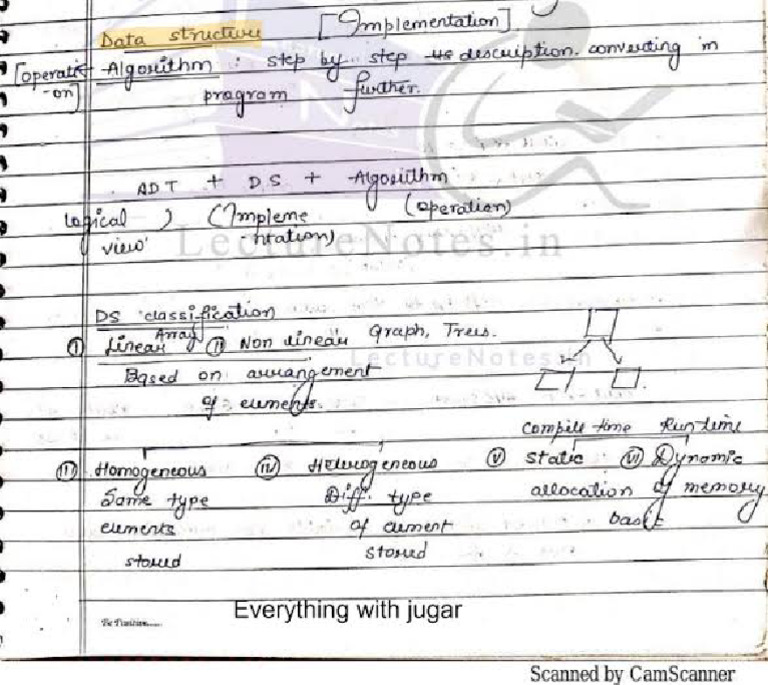 Data structure [Implementation]
[operati -on] Algorithm : step by step description. converting in
program further.
ADT + DS + Algorithm
Logical view ) (Impleme -ntation) (operation)
LectureNotes.in
DS classification
(I) Linear Array (II) Non linear Graph, Trees.
LectureNotes.in
Based on arrangement
of elements.
Compile time Run time
Homogeneous (IV) Heterogeneous (V) Static (VI) Dynamic
Same type Diff. type allocation of memory
elements of element basis
stored stored
Be Positive.....
Everything with jugar
Scanned by CamScanner